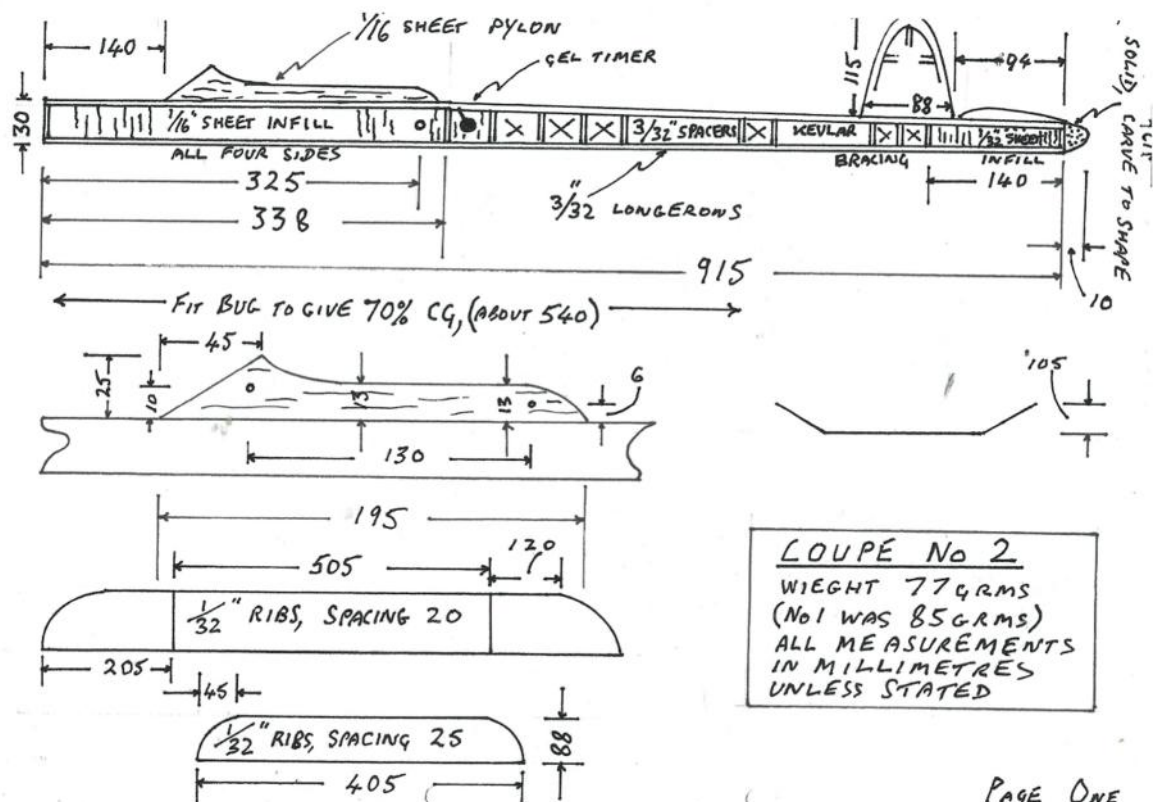 1/16 SHEET PYLON
GEL TIMER
140
30
1/16" SHEET INFILL
ALL FOUR SIDES
3/32" SPACERS
KEVLAR
BRACING
1/32" SHEET
INFILL
115
88
94
SOLID
CARVE TO SHAPE
140
10
3/32" LONGERONS
325
338
915
FIT BUG TO GIVE 70% CG, (ABOUT 540)
45
25
10
13
13
6
130
195
105
505
120
1/32" RIBS, SPACING 20
205
45
1/32" RIBS, SPACING 25
88
405
COUPÉ No 2
WIEGHT 77 GRMS
(No1 WAS 85 GRMS)
ALL MEASUREMENTS
IN MILLIMETRES
UNLESS STATED
PAGE ONE